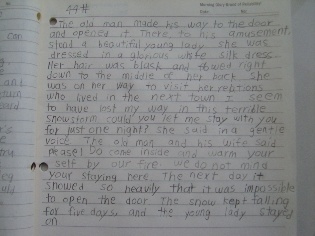 44#
The old man made his way to the door
and opened it There, to his amusement,
stood a beautiful young lady she was
dressed in a glorious white silk dress.
Her hair was black and flowed right
down to the middle of her back She
was on her way to visit her reltions
who lived in the next town I seem
to have lost my way in this terrible
snowstorm could you let me stay with you
for just one night? she said in a gentle
voice The old man and his wife said
Pease! Do come inside and warm your
self by our fire. we do not mind
your staying here. The next day it
snowed so heavily that it was impossible
to open the door The snow kept falling
for five days, and the young lady stayed
on
can